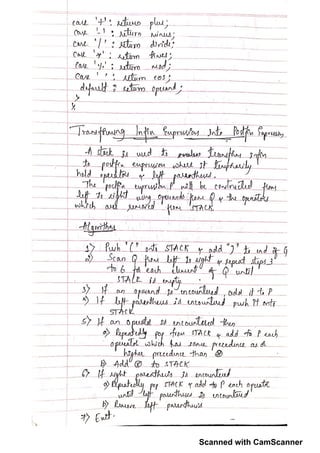 case '+' : return plus;
case '-' : return minus;
case '/' : return divide;
case '*' : return times;
case '%' : return mod;
case ' ' : return eos;
default : return operand;
}
}
Transforming Infix Expression Into Postfix Expression
A stack is used to transform infix
to postfix expression where it temporarily
hold operators & left parenthesis.
The postfix expression P will be constructed from
left to right using operands from Q & the operators
which are removed from STACK.
Algorithm
1) Push '(' onto STACK & add ')' to end of Q
2) Scan Q from left to right & repeat steps 3
to 6 for each element of Q until
STACK is empty
3) If an operand is encountered, add it to P
4) If left parenthesis is encountered push it onto
STACK
5) If an operator is encountered then
a) Repeatedly pop from STACK & add to P each
operator which has same precedence as or
higher precedence than ⊗
b) Add ⊗ to STACK
6) If right parenthesis is encountered
a) Repeatedly pop STACK & add to P each operator
until left parenthesis is encountered
b) Remove left parenthesis
7) Exit.
Scanned with CamScanner